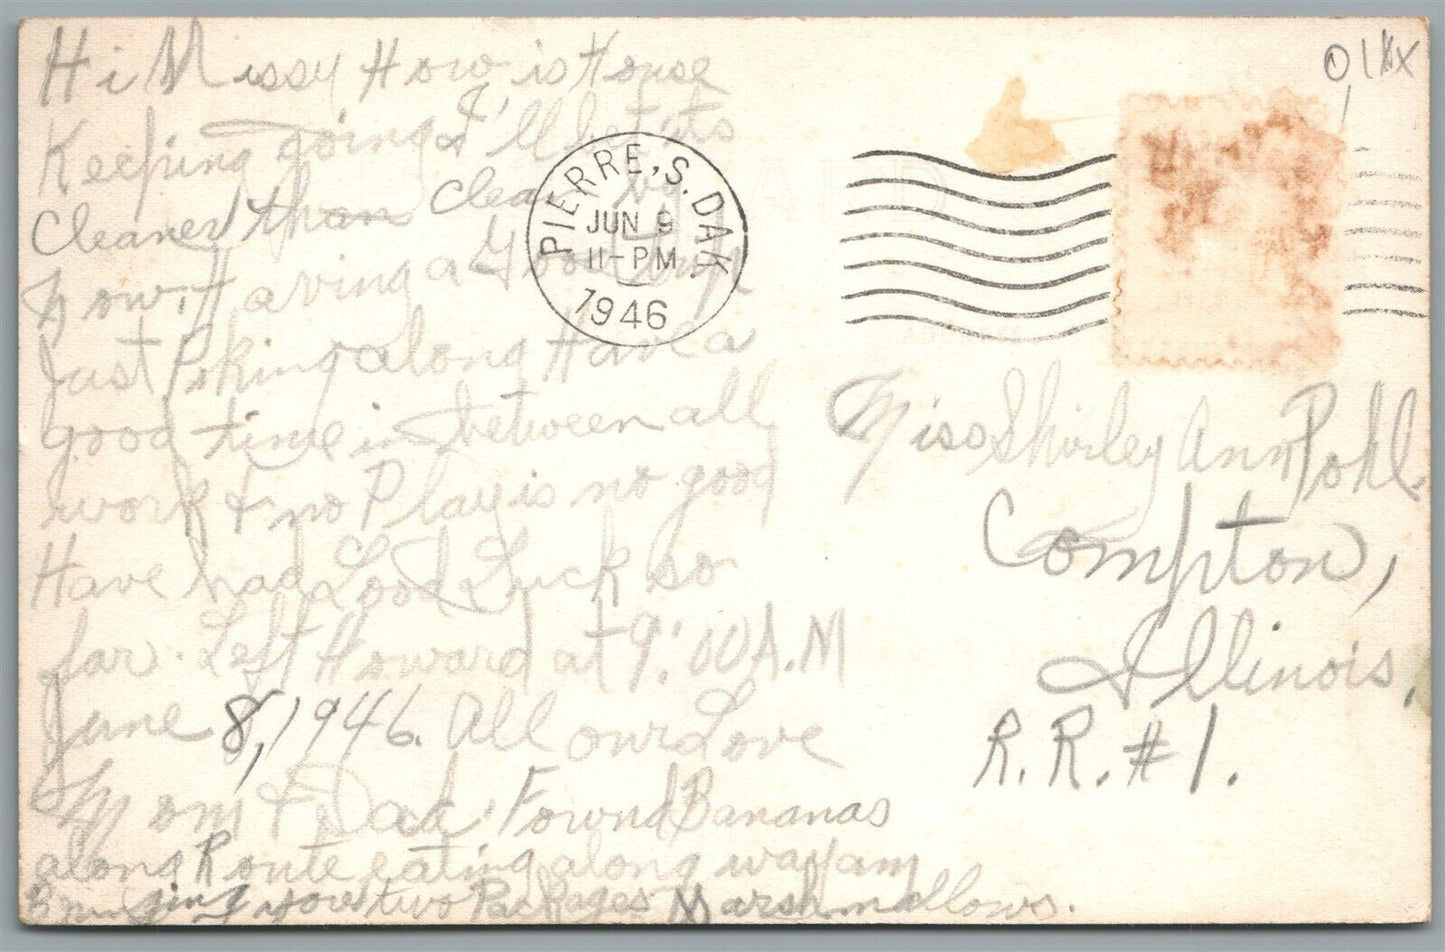 Hi Missy How is House
Keeping going I'll bet its
Cleaner than clean by
now. Having a Good
Just Piking along Have a
good time in between all
work & no Play is no good
Have had Good Luck so
far. Left Howard at 9:00 A.M
June 8, 1946. All our Love
Mom & Dad. Found Bananas
along Route eating along way am
Bringing your two Packages Marshmallows.
PIERRE, S. DAK.
JUN 9
11-PM
1946
Miss Shirley Ann Pohl
Compton,
Illinois,
R.R. #1.